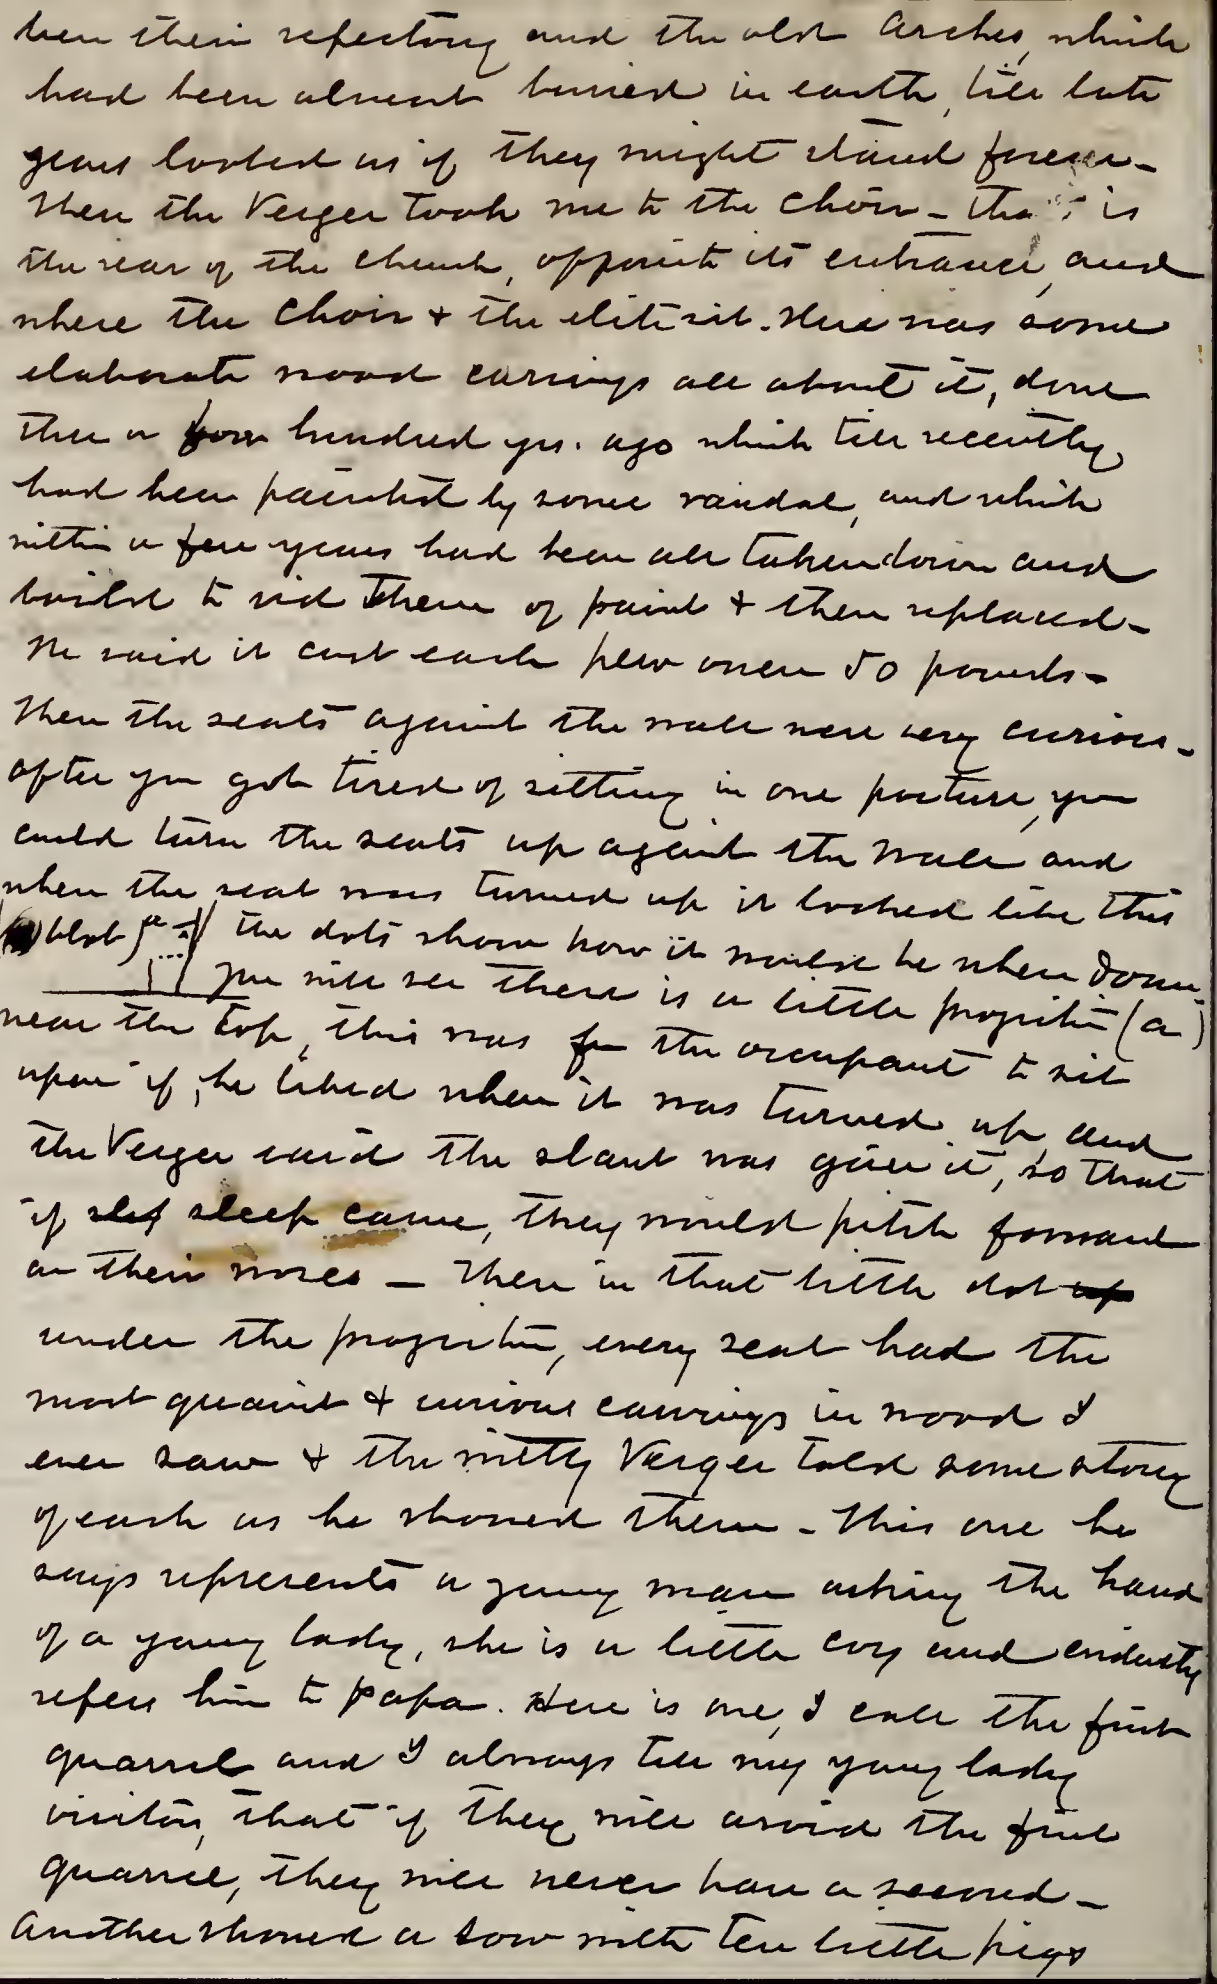 been their refectory and the old arches, which
had been almost buried in earth, till late
years looked as if they might stand forever -
Then the Verger took me to the choir - that is
the rear of the church, opposite its entrance, and
where the choir & the elite sit. Here was some
elaborate wood carvings all about it, done
three or four hundred yrs. ago which till recently
had been painted by some vandal, and which
within a few years had been all taken down and
boiled to rid them of paint & then replaced -
He said it cost each pew over 50 pounds -
Then the seats against the wall were very curious -
after you got tired of sitting in one posture, you
could turn the seats up against the wall and
when the seat was turned up it looked like this
(blot) a the dots show how it would be when down.
you will see there is a little projection (a)
near the top, this was for the occupant to sit
upon if he liked when it was turned up, and
the Verger said the slant was given it, so that
if slef sleep came, they would pitch forward
on their noses - Then in that little dot up
under the projection, every seat had the
most quaint & curious carvings in wood I
ever saw & the witty Verger told some story
of each as he showed them - This one he
says represents a young man asking the hand
of a young lady, she is a little coy and evidently
refers him to papa. Here is one, I call the first
quarrel and I always tell my young lady
visitors, that if they will avoid the first
quarrel, they will never have a second -
Another showed a sow with ten little pigs